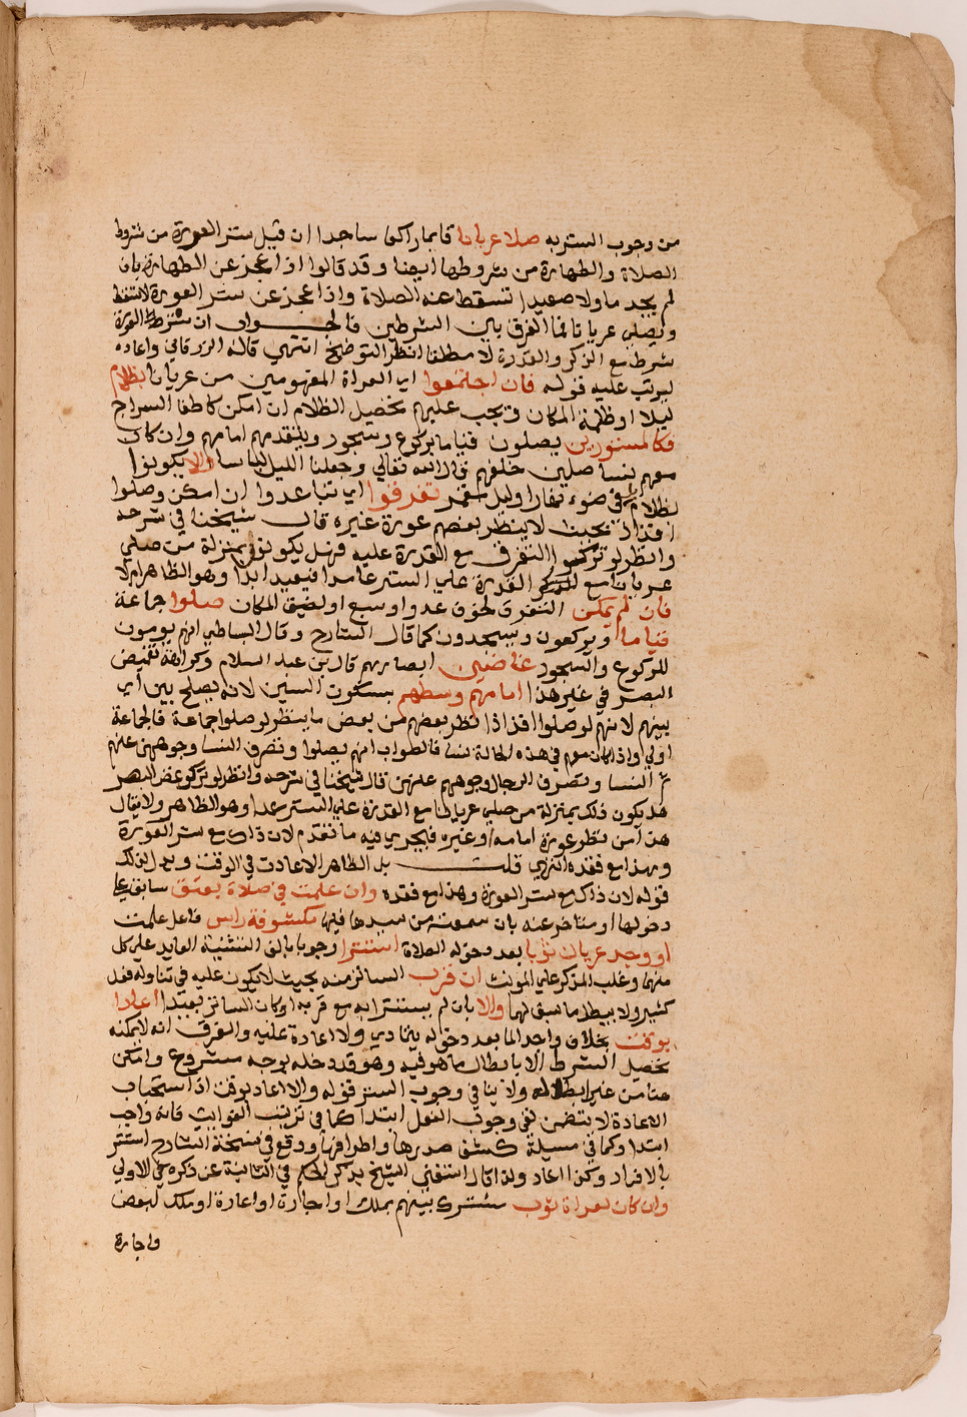 من وجوب الستر به صلا عريانا قايما راكعا ساجدا ان قيل ستر العورة من شروط
الصلاة والطهارة من شروطها ايضا وقد قالوا اذا عجز عن الطهارة بان
لم يجد ماولا صعيدا تسقط عنه الصلاة واذا عجز عن ستر العورة لا تسقط
ويصلي عريانا فما الفرق بين الشرطين فالجواب ان ستر العورة
شرط مع الذكر والقدرة لا مطلقا انظر التوضيح انتهي قاله الزرقاني واعاده
ليرتب عليه قوله فان اجتمعوا اي العراة المفهومين من عريانا بظلام
ليلا او ظلمة المكان ويجب عليهم تحصيل الظلام ان امكن كاطفا السراج
فكالمستورين يصلون قياما بركوع وسجود ويتقدمهم امامهم وان كان
معهم نسا صلين خلفهم قال الله تعالي وجعلنا الليل لباسا والا يكونوا
بظلام في ضوء نهار او ليل مقمر تفرقوا اي تباعدوا ان امكن وصلوا
افذاذا بحيث لا ينظر بعضهم عورة غيره قال شيخنا في شرحه
وانظر لو تركوا التفرق مع القدرة عليه فهل يكونون بمنزلة من صلي
عريانا مع القدرة علي الستر عامدا فيعيد ابدا وهو الظاهر ام لا
فان لم يمكن التفرق لخوف عدو او سبع او لضيق المكان صلوا جماعة
قياما ويركعون ويسجدون كما قال الشارح وقال البساطي انهم يومون
للركوع والسجود غاضين ابصارهم قال بن عبد السلام وكراهة تغميض
البصر في غير هذا امامهم وسطهم بسكون السين لانه يصلح بين اي
بينهم لانهم لو صلوا افذاذا نظر بعضهم من بعض ما ينظر لو صلوا جماعة فالجماعة
اولي واذا كان معهم في هذه الحالة نسا فالصواب انهم يصلوا وتصرف النسا وجوههن عنهم
ثم النسا وتصرف الرجال وجوههم عنهن قال شيخنا في شرحه وانظر لو تركو غض البصر
هل يكون ذلك بمنزلة من صلي عريانا مع القدرة علي الستر عمدا وهو الظاهر ولا يقال
هذا من نظر عورة امامه او غيره فيجري فيه ما تقدم لان ذاك مع ستر العورة
وهذا مع فقده انتهي قلت بل الظاهر الاعادة في الوقت
قوله لان ذاك مع ستر العورة وهذا مع فقده وان علمت في صلاة بعتق سابق علي
دخولها او متاخر عنه بان سمعت من سيدها فيها مكشوفة راس فاعل علمت
او وجد عريان ثوبا بعد دخوله الصلاة استترا وجوبا بالف التثنية العايد علي كل
منهما وغلب المذكر علي المونث ان قرب الساتر منه بحيث لا يكون عليه في تناوله فعل
كثير ولا يبطل ما سبق لهما والا بان لم يستترا به مع قربه او كان الساتر بعيدا اعادا
بوقت بخلاف واجد الما بعد دخوله يتمادي ولا اعادة عليه والفرق انه لا يمكنه
تحصيل الشرط الا بابطال ما هو فيه وهو قد دخله بوجه مشروع وامكن
هنا من غير ابطاله ولا ينافي وجوب الستر قوله والا اعاد بوقت اذ استحباب
الاعادة لا يتضمن نفي وجوب الفعل ابتدا كما في ترتيب الفوايت فانه واجب
ابتدا وكما في مسيلة كشف صدرها واطرافها ووقع في نسخة الشارح استتر
بالافراد وكذا اعاد ولذا قال استغني الشيخ بذكر الحكم في الثانية عن ذكره في الاولي
وان كان لعراة ثوب مشترك بينهم بملك او اجارة او اعارة او ملك لبعض
واجارة